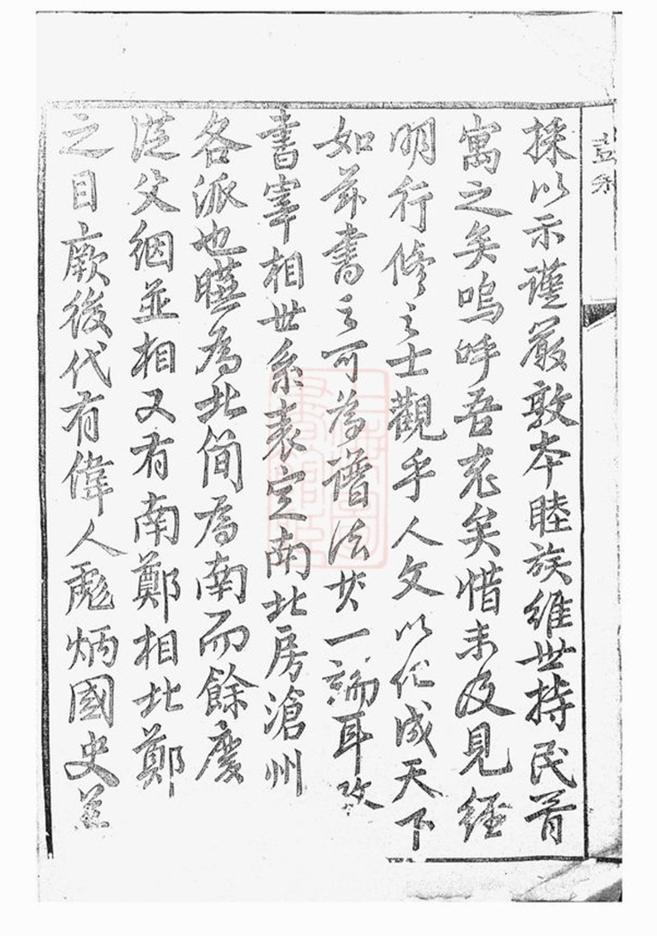 採以示謹嚴敦本睦族維世持民首
寓之矣嗚呼吾老矣惜未及見經
明行修之士觀乎人文以化成天下
如茲書之可為譜法其一端耳攷
書宰相世系表定南北房滄州
各派也曄為北簡為南而餘慶
從父絪並相又有南鄭相北鄭
之目厥後代有偉人彪炳國史